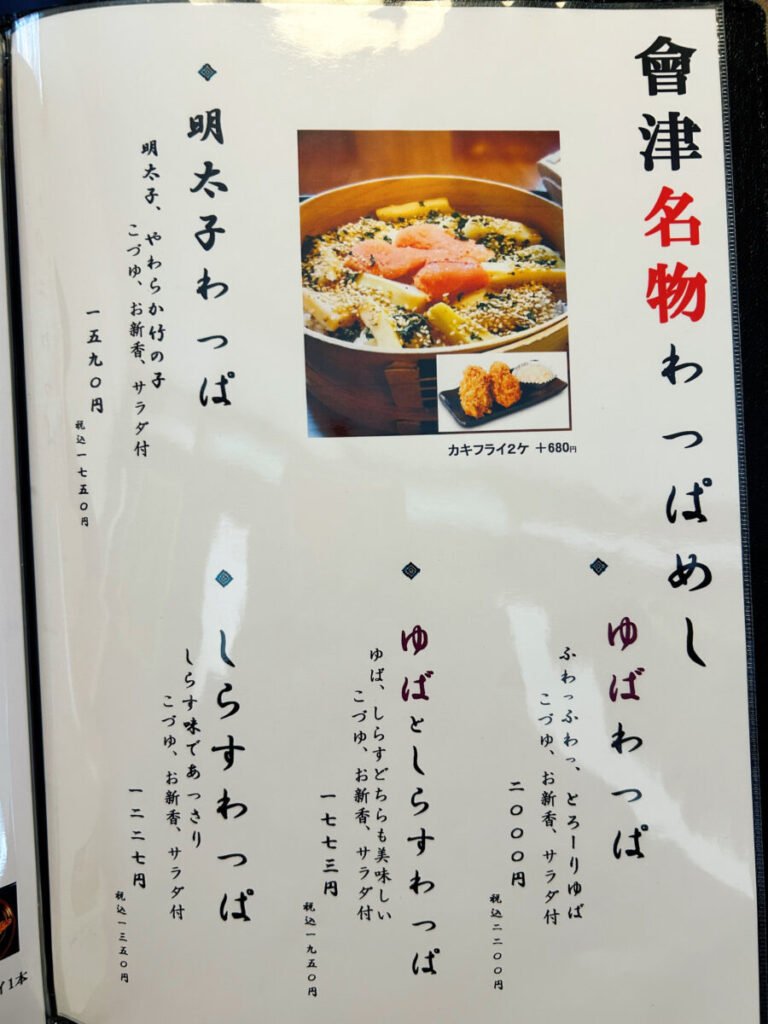 會津名物わっぱめし
カキフライ2ケ +680円
明太子わっぱ
明太子、やわらか竹の子
こづゆ、お新香、サラダ付
一五九〇円
税込一七五〇円
ゆばわっぱ
ふわっふわっ、とろーりゆば
こづゆ、お新香、サラダ付
二〇〇〇円
税込二二〇〇円
ゆばとしらすわっぱ
ゆば、しらすどちらも美味しい
こづゆ、お新香、サラダ付
一七七三円
税込一九五〇円
しらすわっぱ
しらす味であっさり
こづゆ、お新香、サラダ付
一二二七円
税込一三五〇円
イ1本